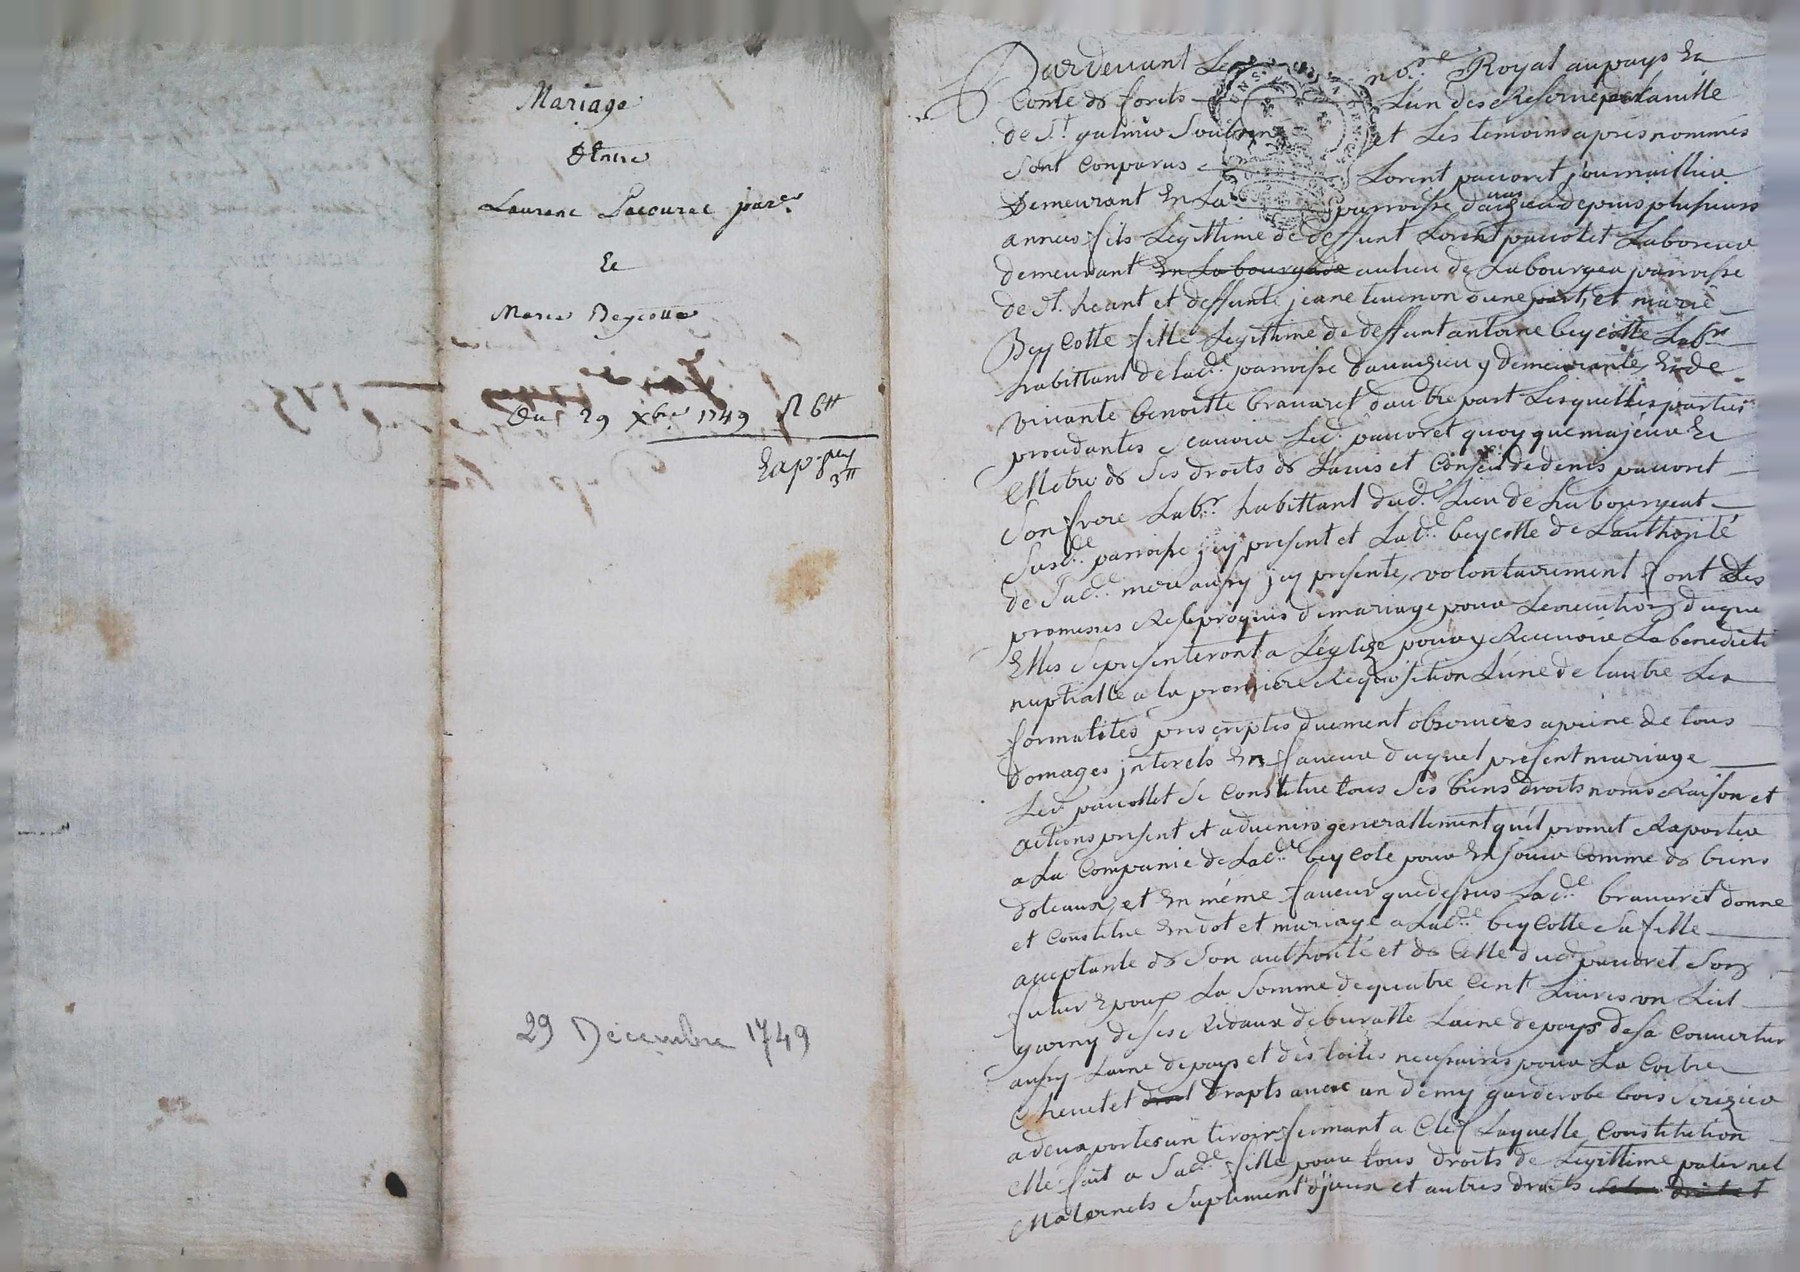 Mariage
D'Entre
Laurent Paccoret jour.er
Et
Marie Beycotte
Du 29 Xbre 1749
Exp.
29 Décembre 1749
Pardevant Le no.re Royal au pays Et
Conte de forêts L'un des Reservé pour la ville
de St. galmier Soubsigné et Les temoins après nommés
Sont Conparus Lorent pacoret journaillier
Demeurant En La parroisse d'auaizieu depuis plusieurs
années fils Legittime de deffunt Lorent pacolet Laboreur
demeurant En La bourgade au lieu de Labourgea parroisse
de St. heant et deffunte jeane tevenon d'une part, et marie
Beycotte fille Legittime de deffunt antoine beycotte Lab.r
habittant de lad.e parroisse d'auaizieu y demeurante, Et de
vivante benoitte bravaret d'autre part Lesquelles parties
procedantes scavoir Led. pacoret quoy que majeur Et
Metre de Ses droits de L'avis et Conseil de denis pacoret
Son frere Lab.r habittant dud. Lieu de Labourgeat
Susd.e parroisse jcy present et Lad.e beycotte de L'authorité
de Sad.e mere aussy jcy presente, volontairement font Les
promesses Resiproques de mariage pour L'execution duque
Elles se presenteront a L'eglize pour y Recevoir La benedicti
nuptialle a la premiere Requisition L'une de l'autre Les
formalités prescriptes duement observées a peine de tous
Domages jnterets En faveur duquel present mariage
Led. pacollet Se Constitue tous Ses biens droits noms Raison et
actions present et advenirs generallement qu'il promet Raporter
a La Companie de Lad.e beycote pour En jouir Comme de biens
doteaux, et En même faveur que dessus Lad.e bravaret donne
et Constitue En dot et mariage a Lad.e beycotte Sa fille
acceptante de Son authorité et de Celle dud. pacoret Son
futur Epoux La Somme de quatre Cent Livres un Lict
garny de ses Ridaux de buratte Laine de pays de sa Couvertur
aussy Laine de pays et des toiles necessaires pour La Coitre
Chevet et draps avec un demy garderobe bois Serizier
a deux portes un tiroir fermant a Clef Laquelle Constitution
elle fait a Sad.e fille pour tous droits de Legittime paternel
Maternels Supliment d'jceux et autres droits